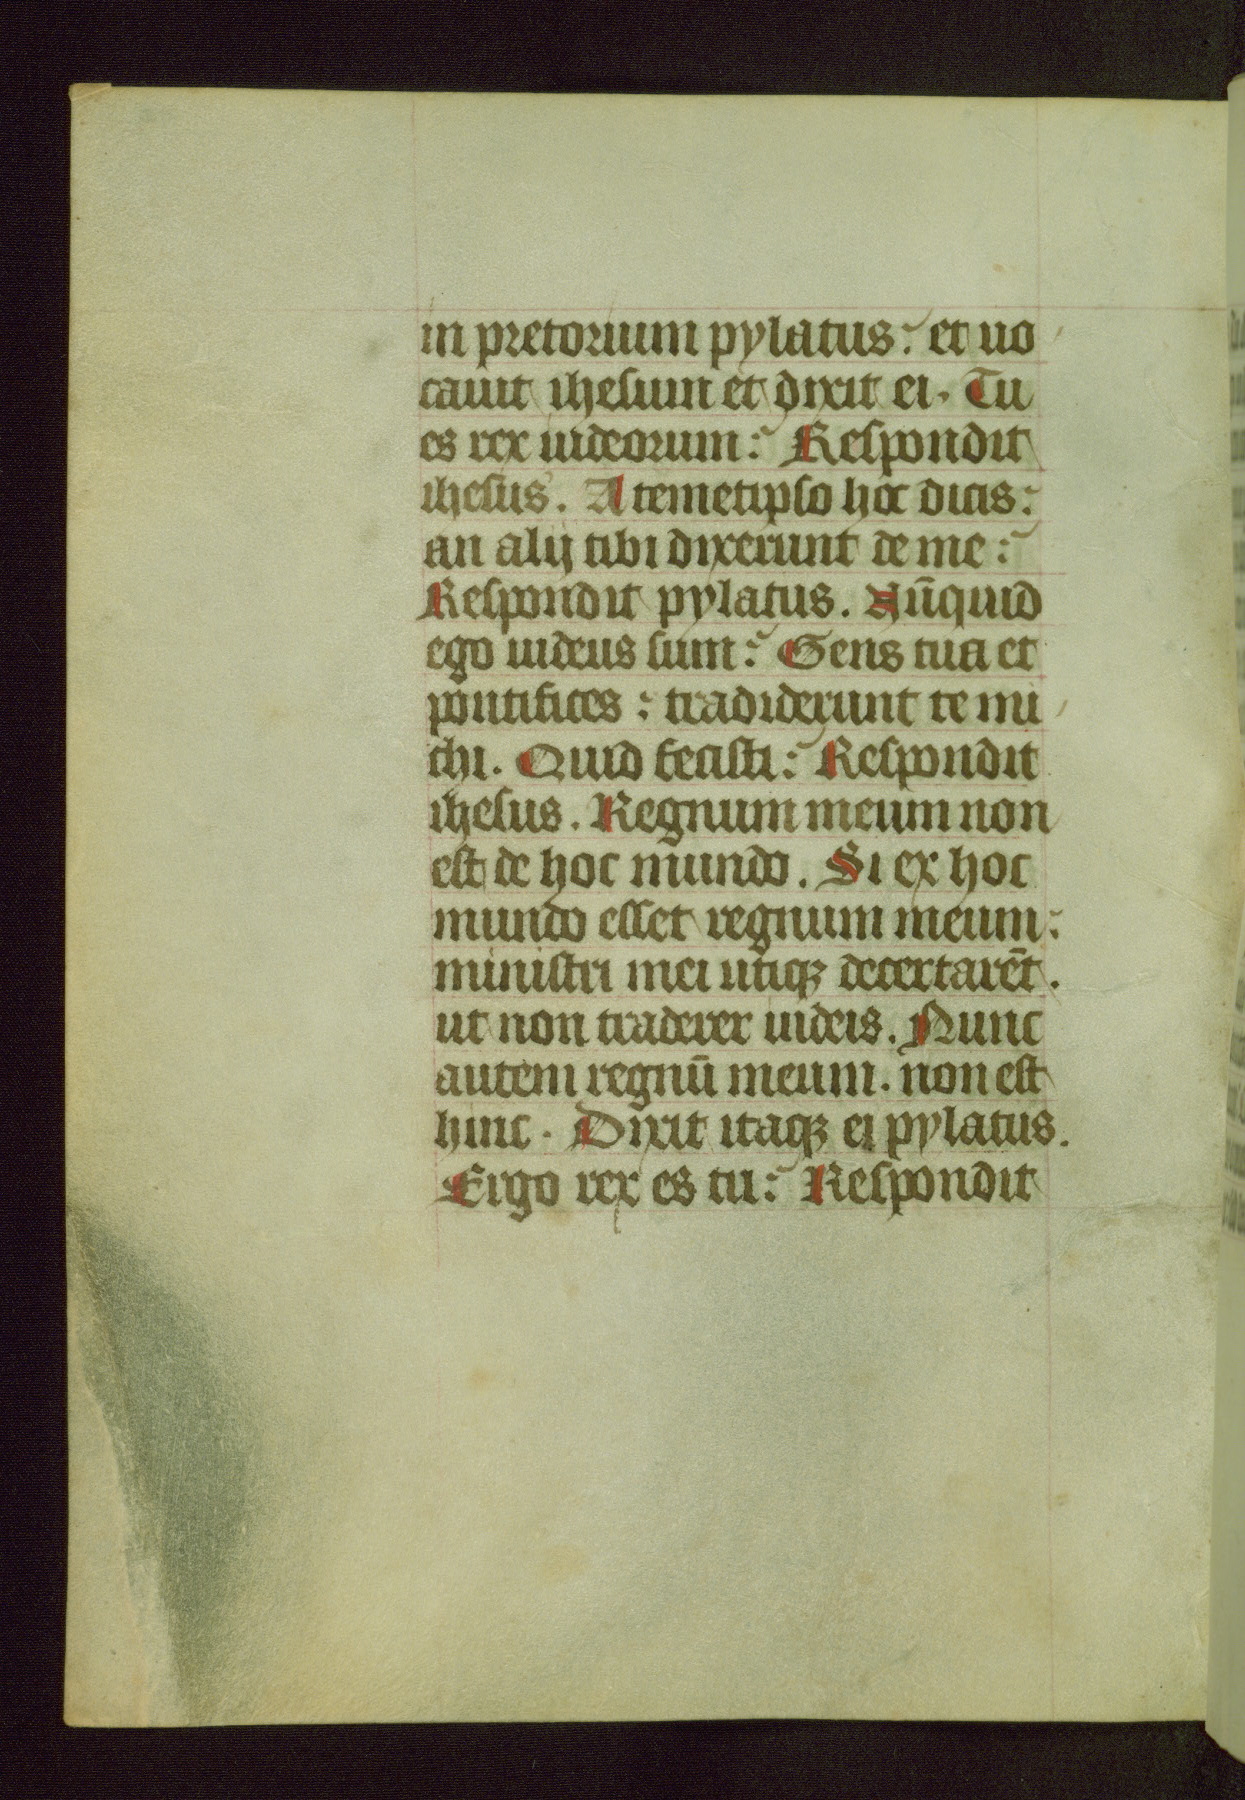 in pretorium pylatus: et uo
cauit ihesum et dixit ei. Tu
es rex iudeorum: Respondit
ihesus. A temetipso hoc dicis:
an alij tibi dixerunt de me:
Respondit pylatus. Nūquid
ego iudeus sum: Gens tua et
pontifices: tradiderunt te mi
chi. Quid fecisti: Respondit
ihesus. Regnum meum non
est de hoc mundo. Si ex hoc
mundo esset regnum meum:
ministri mei utiqꝫ decertarēt.
ut non traderer iudeis. Nunc
autem regnū meum. non est
hinc. Dixit itaqꝫ ei pylatus.
Ergo rex es tu: Respondit